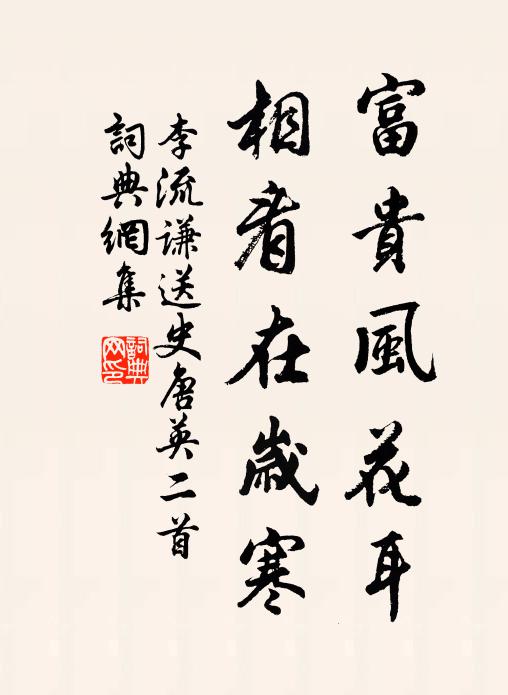 富貴風花耳
相看在歲寒
李流謙送史唐英二首
詞典網集
詞典網印